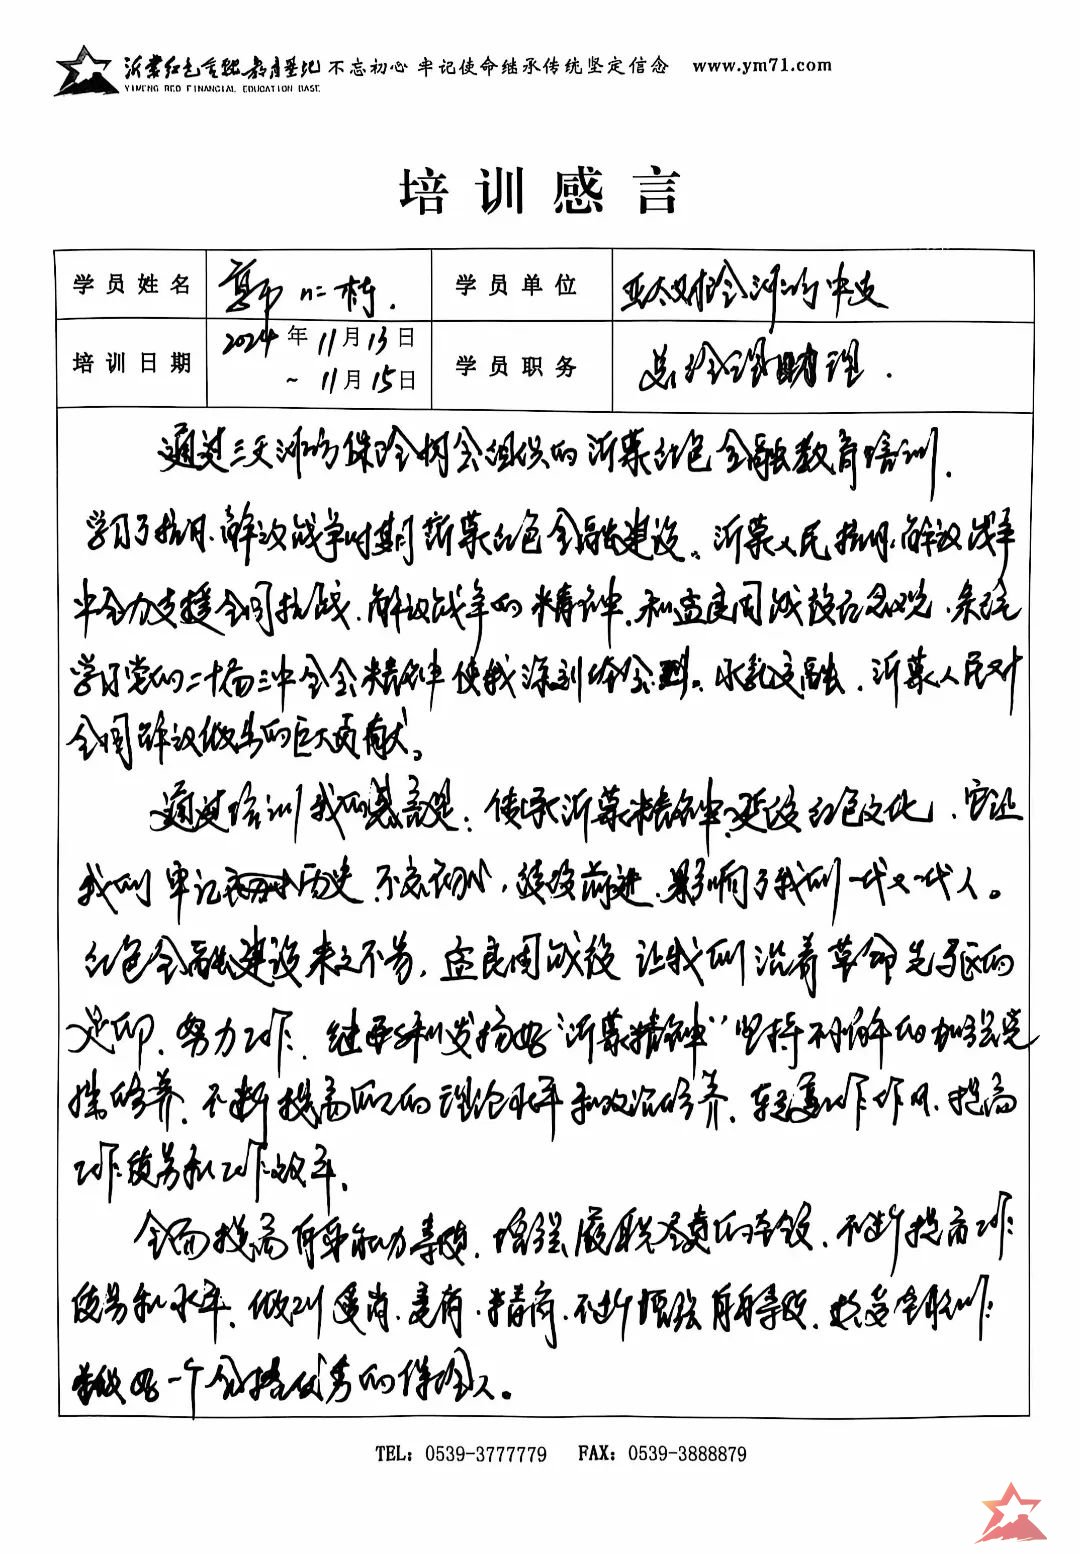 沂蒙红色金融教育基地 不忘初心 牢记使命继承传统坚定信念 www.ym71.com
YIMENG RED FINANCIAL EDUCATION BASE
培训感言
学员姓名 学员单位 亚太财险潍坊中支
培训日期 2024年11月13日 ~ 11月15日 学员职务 总经理助理.
通过三天潍坊保险协会组织的沂蒙红色金融教育培训.
学习了抗日、解放战争时期沂蒙红色金融建设。沂蒙人民抗日、解放战争
中全力支援全国抗战、解放战争的精神,和孟良固战役纪念馆、
学习党的二十届三中全会精神使我深刻体会到。水乳交融、沂蒙人民对
全国解放做出的巨大贡献。
通过培训我的感言是:传承沂蒙精神,延续红色文化,它让
我们牢记历史不忘初心,继续前进,影响了我们一代又一代人。
红色金融建设来之不易,孟良固战役让我们沿着革命先驱的
足印,努力工作,继承和发扬好“沂蒙精神”坚持不懈的加强党
性修养,不断提高自己的理论水平和政治修养,转变工作作风,提高
工作质量和工作效率。
全面提高自身能力素质,增强履职尽责的本领,不断提高工作
质量和水平,做到,不断增强自身素质,
做好一个合格优秀的保险人。
TEL: 0539-3777779 FAX: 0539-3888879